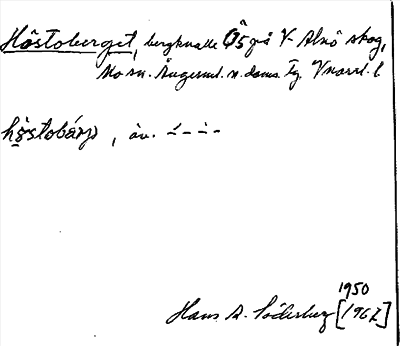 Höstoberget, bergknalle Ö 5 på V Alnö skog,
Mo sn. Ångerml. n. doms. tg. Vnorrl. l
höstobárjə, äv. –́ – –̀ –
1950
Hans A. Söderberg [1967]